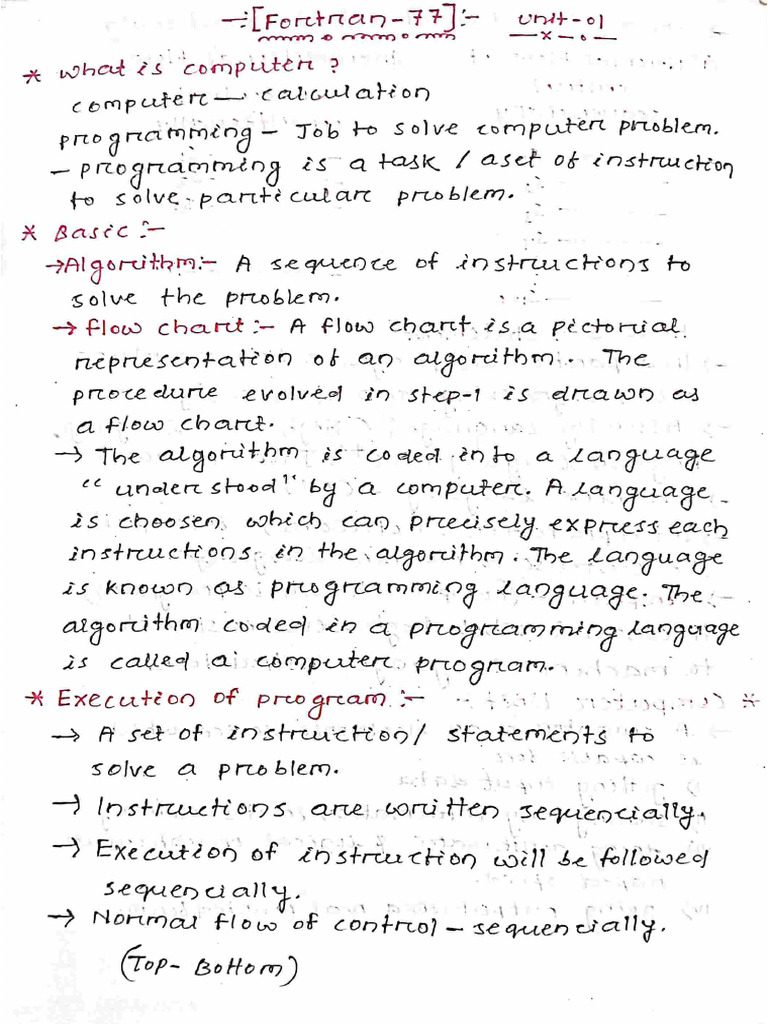 -:[Fortran-77]:- unit-01
—x—o—
* What is computer ?
computer — calculation
programming – Job to solve computer problem.
– programming is a task / aset of instruction
to solve particular problem.
* Basic :-
→Algorithm:- A sequence of instructions to
solve the problem.
→ flow chart :- A flow chart is a pictorial
representation of an algorithm. The
procedure evolved in step-1 is drawn as
a flow chart.
→ The algorithm is coded into a language
"understood" by a computer. A language
is choosen which can precisely express each
instructions in the algorithm. The language
is known as programming language. The
algorithm coded in a programming language
is called a computer program.
* Execution of program :-
→ A set of instruction/ statements to
solve a problem.
→ Instructions are written sequencially.
→ Execution of instruction will be followed
sequencially.
→ Normal flow of control – sequencially.
(Top- Bottom)